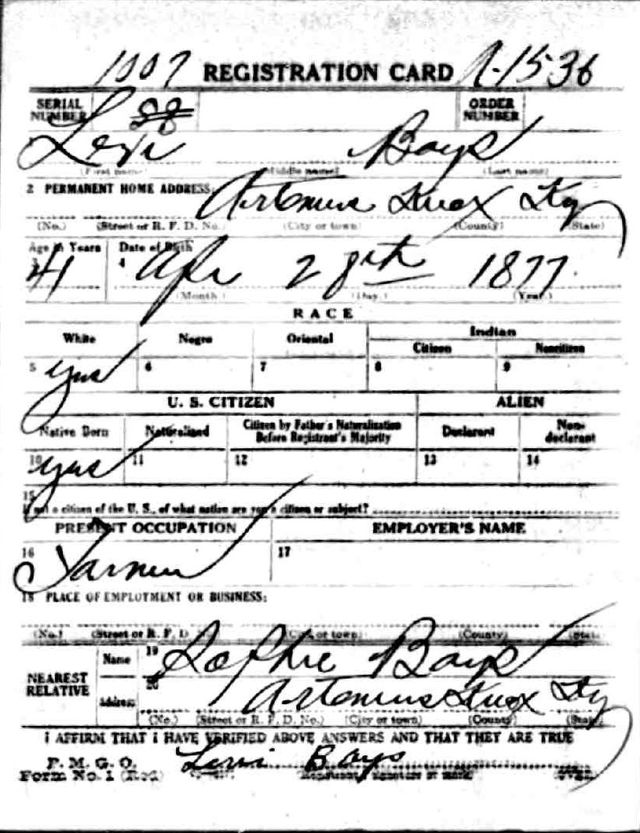 1007 REGISTRATION CARD A-1536
SERIAL NUMBER 88 ORDER NUMBER
Levi Bays
(First name) (Middle name) (Last name)
2 PERMANENT HOME ADDRESS: Artemus Knox Ky
(No.) (Street or R. F. D. No.) (City or town) (County) (State)
Age in Years Date of Birth
3 41 4 Apr 28th 1877
(Month) (Day) (Year)
RACE
White Negro Oriental Indian
Citizen Noncitizen
5 yes 6 7 8 9
U. S. CITIZEN ALIEN
Native Born Naturalized Citizen by Father's Naturalization Before Registrant's Majority Declarant Non-declarant
10 yes 11 12 13 14
15
If not a citizen of the U. S., of what nation are you a citizen or subject?
PRESENT OCCUPATION EMPLOYER'S NAME
16 Farmer 17
18 PLACE OF EMPLOYMENT OR BUSINESS:
(No.) (Street or R. F. D. (City or town) (County) (State)
NEAREST RELATIVE Name 19 Sophie Bays
Address 20 Artemus Knox Ky
(No.) (Street or R. F. D. No.) (City or town) (County) (State)
I AFFIRM THAT I HAVE VERIFIED ABOVE ANSWERS AND THAT THEY ARE TRUE
P. M. G. O.
Form No. 1 (Red) Levi Bays
(Registrant's signature or mark)